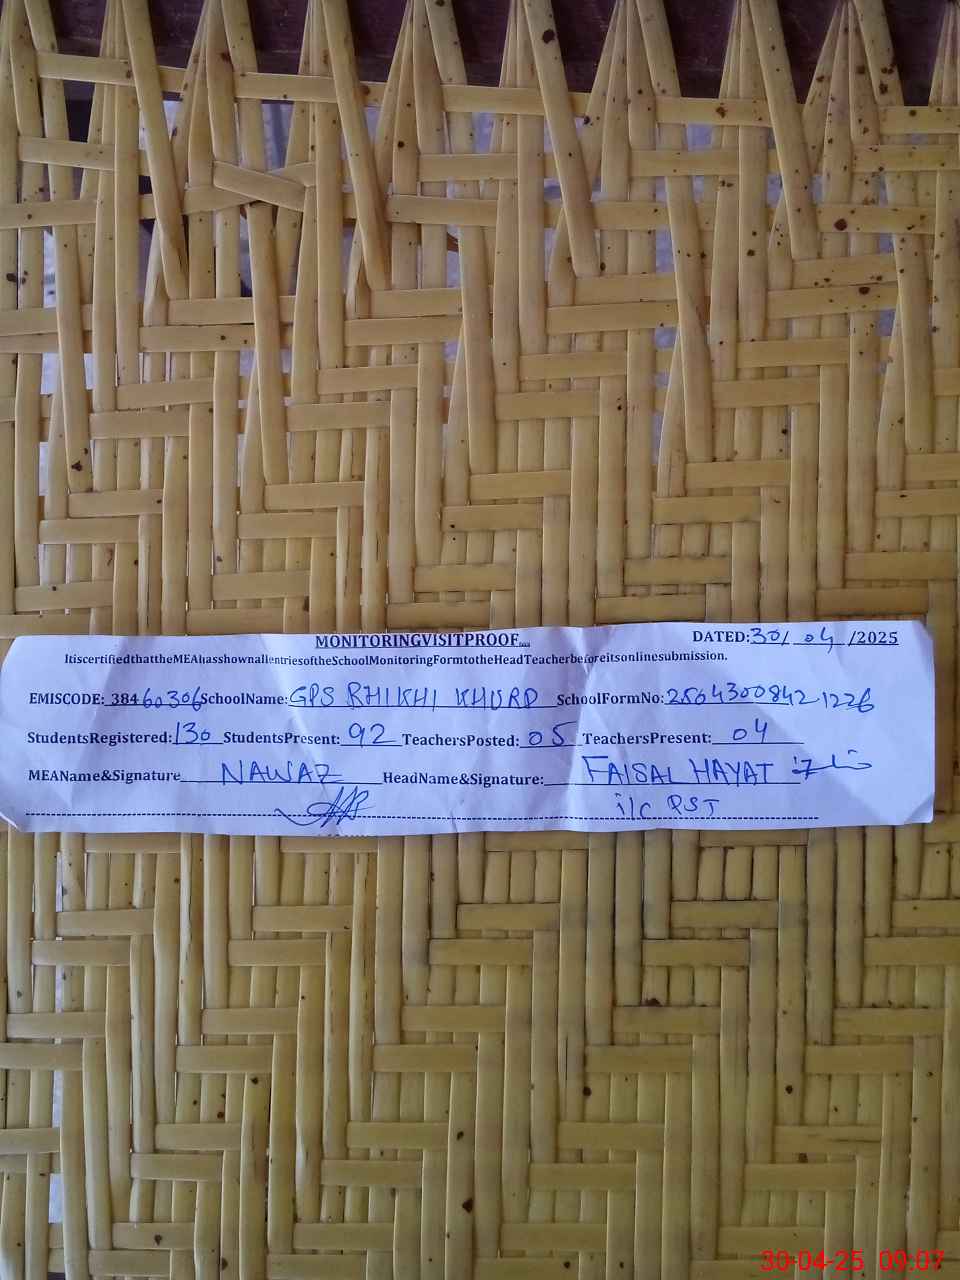 MONITORINGVISITPROOF
DATED: 30/ 04 /2025
ItiscertifiedthattheMEAhasshownallentriesoftheSchoolMonitoringFormtotheHeadTeacherbeforeitsonlinesubmission.
EMISCODE: 38460306 SchoolName: GPS RHIKHI KHURD SchoolFormNo: 2504300842 1226
StudentsRegistered: 130 StudentsPresent: 92 TeachersPosted: 05 TeachersPresent: 04
MEAName&Signature NAWAZ HeadName&Signature: FAISAL HAYAT
i/c PST
30-04-25 09:07